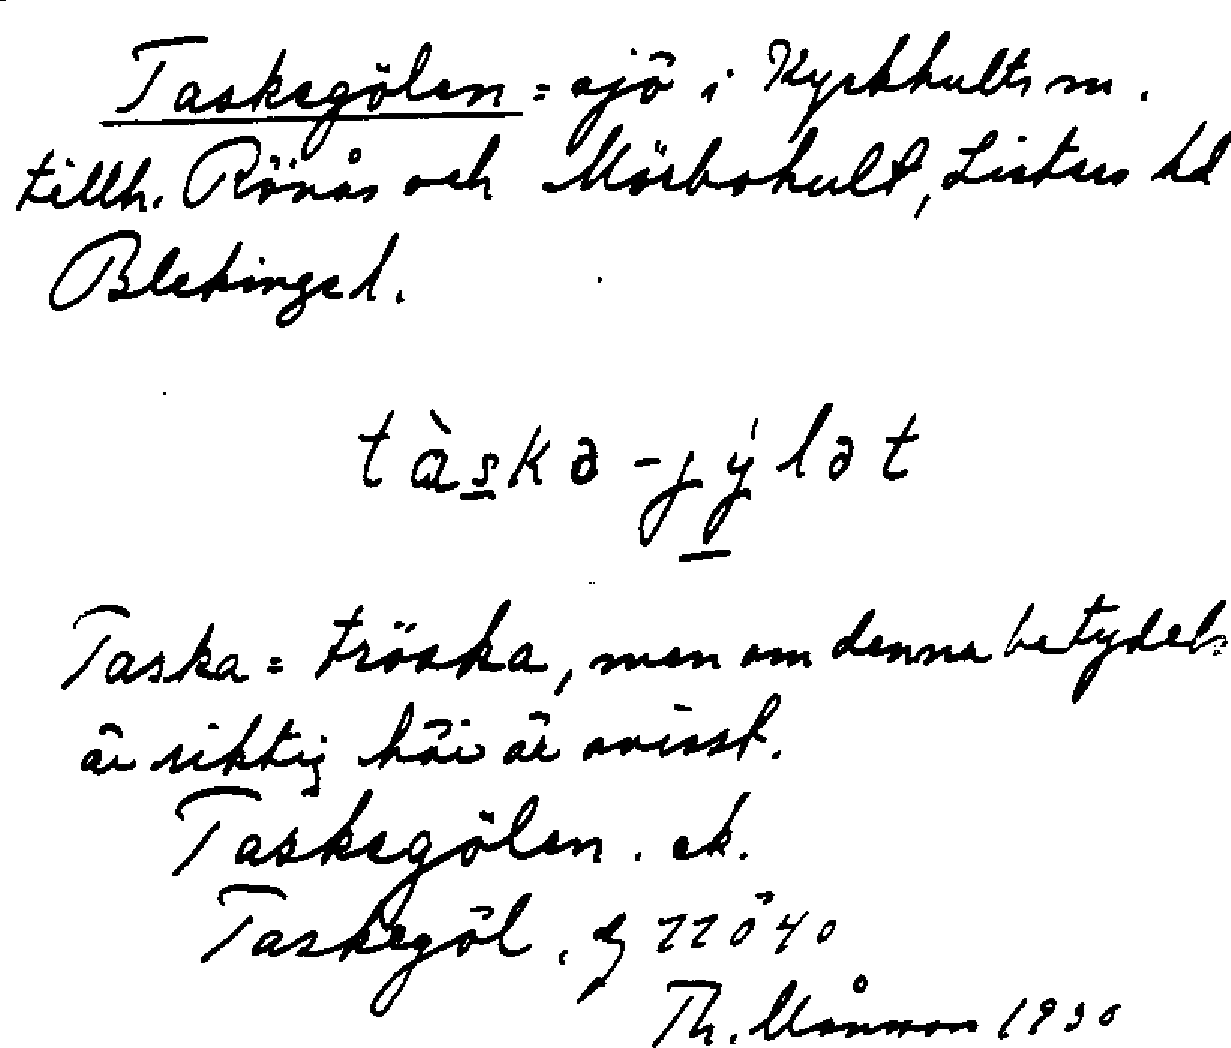 Taskegölen = sjö i Kyrkhults sn.
tillh. Rönås och Mörbohult, Listers hd
Blekinge l.
tàskə-jýlət
Taska = tröska, men om denna betydels
är riktig här är ovisst.
Taskegölen. ek.
Taskegöl. g 22 ö 40
Th. Månsson 1930